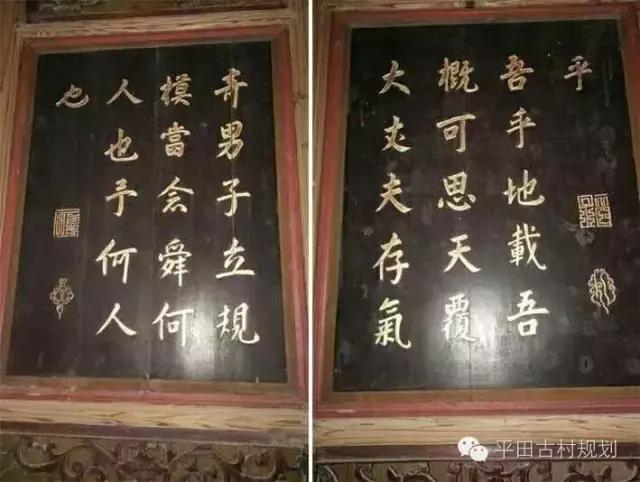 奇男子立規
模當念舜何
人也予何人
也
大丈夫存氣
概可思天覆
吾乎地載吾
乎
平田古村规划